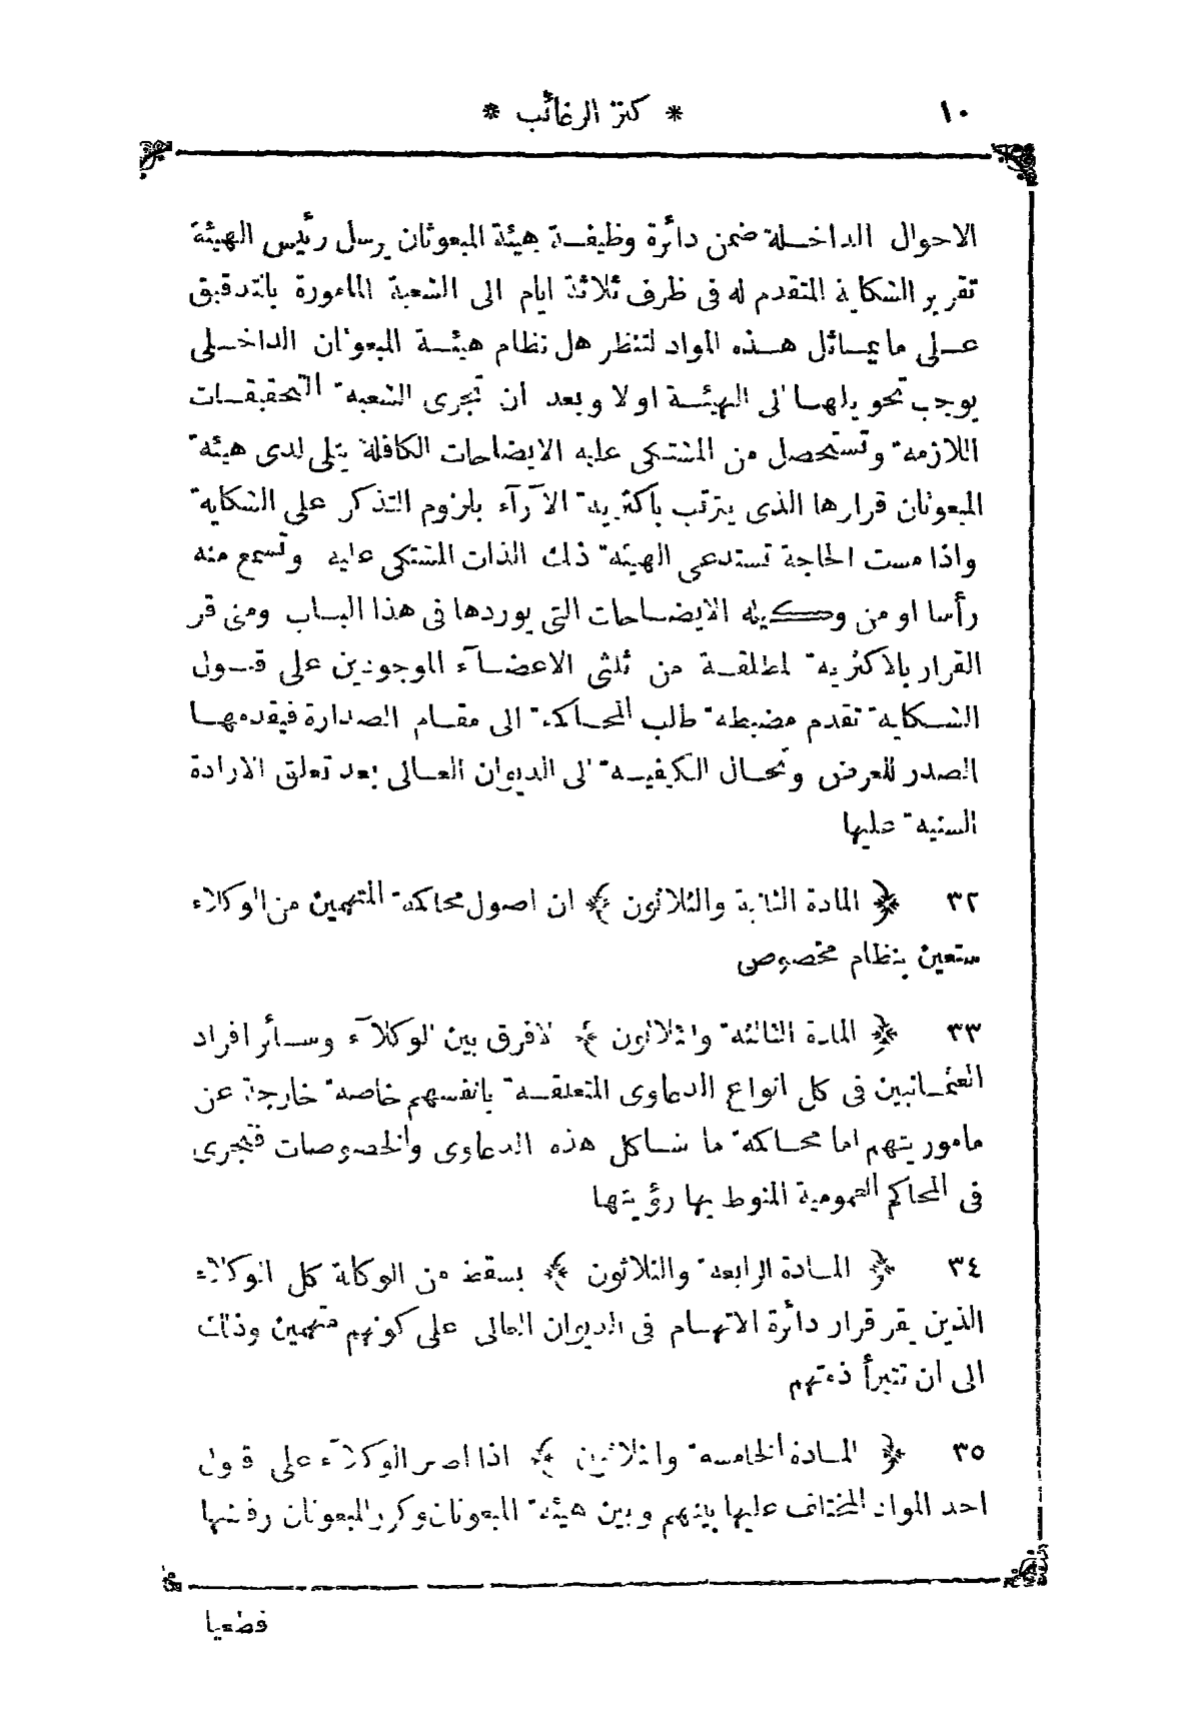 ١٠
* كنز الرغائب *
الاحوال الداخلة ضمن دائرة وظيفة هيئة المبعوثان يرسل رئيس الهيئة
تقرير الشكاية المتقدم له فى ظرف ثلاثة ايام الى الشعبة المأمورة بالتدقيق
على ما يماثل هذه المواد لتنظر هل نظام هيئة المبعوثان الداخلى
يوجب تحويلها الى الهيئة اولا وبعد ان تجرى الشعبة التحقيقات
اللازمة وتستحصل من المشتكى عليه الايضاحات الكافلة يتلى لدى هيئة
المبعوثان قرارها الذى يترتب باكثرية الآرآء بلزوم التذكر على الشكاية
واذا مست الحاجة تستدعى الهيئة ذلك الذات المشتكى عليه وتسمع منه
رأسا او من وكيله الايضاحات التى يوردها فى هذا الباب ومتى قر
القرار بالاكثرية المطلقة من ثلثى الاعضآء الموجودين على قبول
الشكاية تقدم مضبطة طلب المحاكمة الى مقام الصدارة فيقدمها
الصدر للعرض وتحال الكيفية الى الديوان العالى بعد تعلق الارادة
السنية عليها
٣٢ ﴿ المادة الثانية والثلاثون ﴾ ان اصول محاكمة المتهمين من الوكلاء
ستعين بنظام مخصوص
٣٣ ﴿ المادة الثالثة والثلاثون ﴾ لافرق بين الوكلآء وسائر افراد
العثمانيين فى كل انواع الدعاوى المتعلقة بانفسهم خاصة خارجة عن
ماموريتهم اما محاكمة ما شاكل هذه الدعاوى والخصوصات فتجرى
فى المحاكم العمومية المنوط بها رؤيتها
٣٤ ﴿ المادة الرابعة والثلاثون ﴾ يسقط من الوكالة كل الوكلاء
الذين يقر قرار دائرة الاتهام فى الديوان العالى على كونهم متهمين وذلك
الى ان تتبرأ ذمتهم
٣٥ ﴿ المادة الخامسة والثلاثون ﴾ اذا اصر الوكلآء على قبول
احد المواد المختلف عليها بينهم وبين هيئة المبعوثان وكرر المبعوثان رفضها
قطعيا